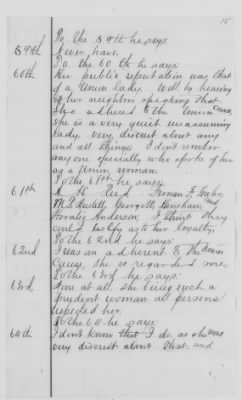 15
To the 59th he says:
59th I ever have.
To the 60th he says:
60th Her public reputation was that
of a Union Lady. Well by hearing
of her neighbors speaking that
she adhered the Union Cause
she is a very quiet unassuming
lady, very discreet about any
and all things. I don't
any one specially who spoke of her
as a Union woman.
To the 61st he says:
61st A. K. Thomas
M. P. and
Anderson, I think they
could testify as to her loyalty.
To the 62nd he says:
62nd I was an adherent to the Union
Cause, she so regarded me.
To the 63rd he says:
63rd None at all she being such a
prudent woman all persons
respected her.
To the 64 he says:
64th I don't know that I do, as she was
very discreet about that, and